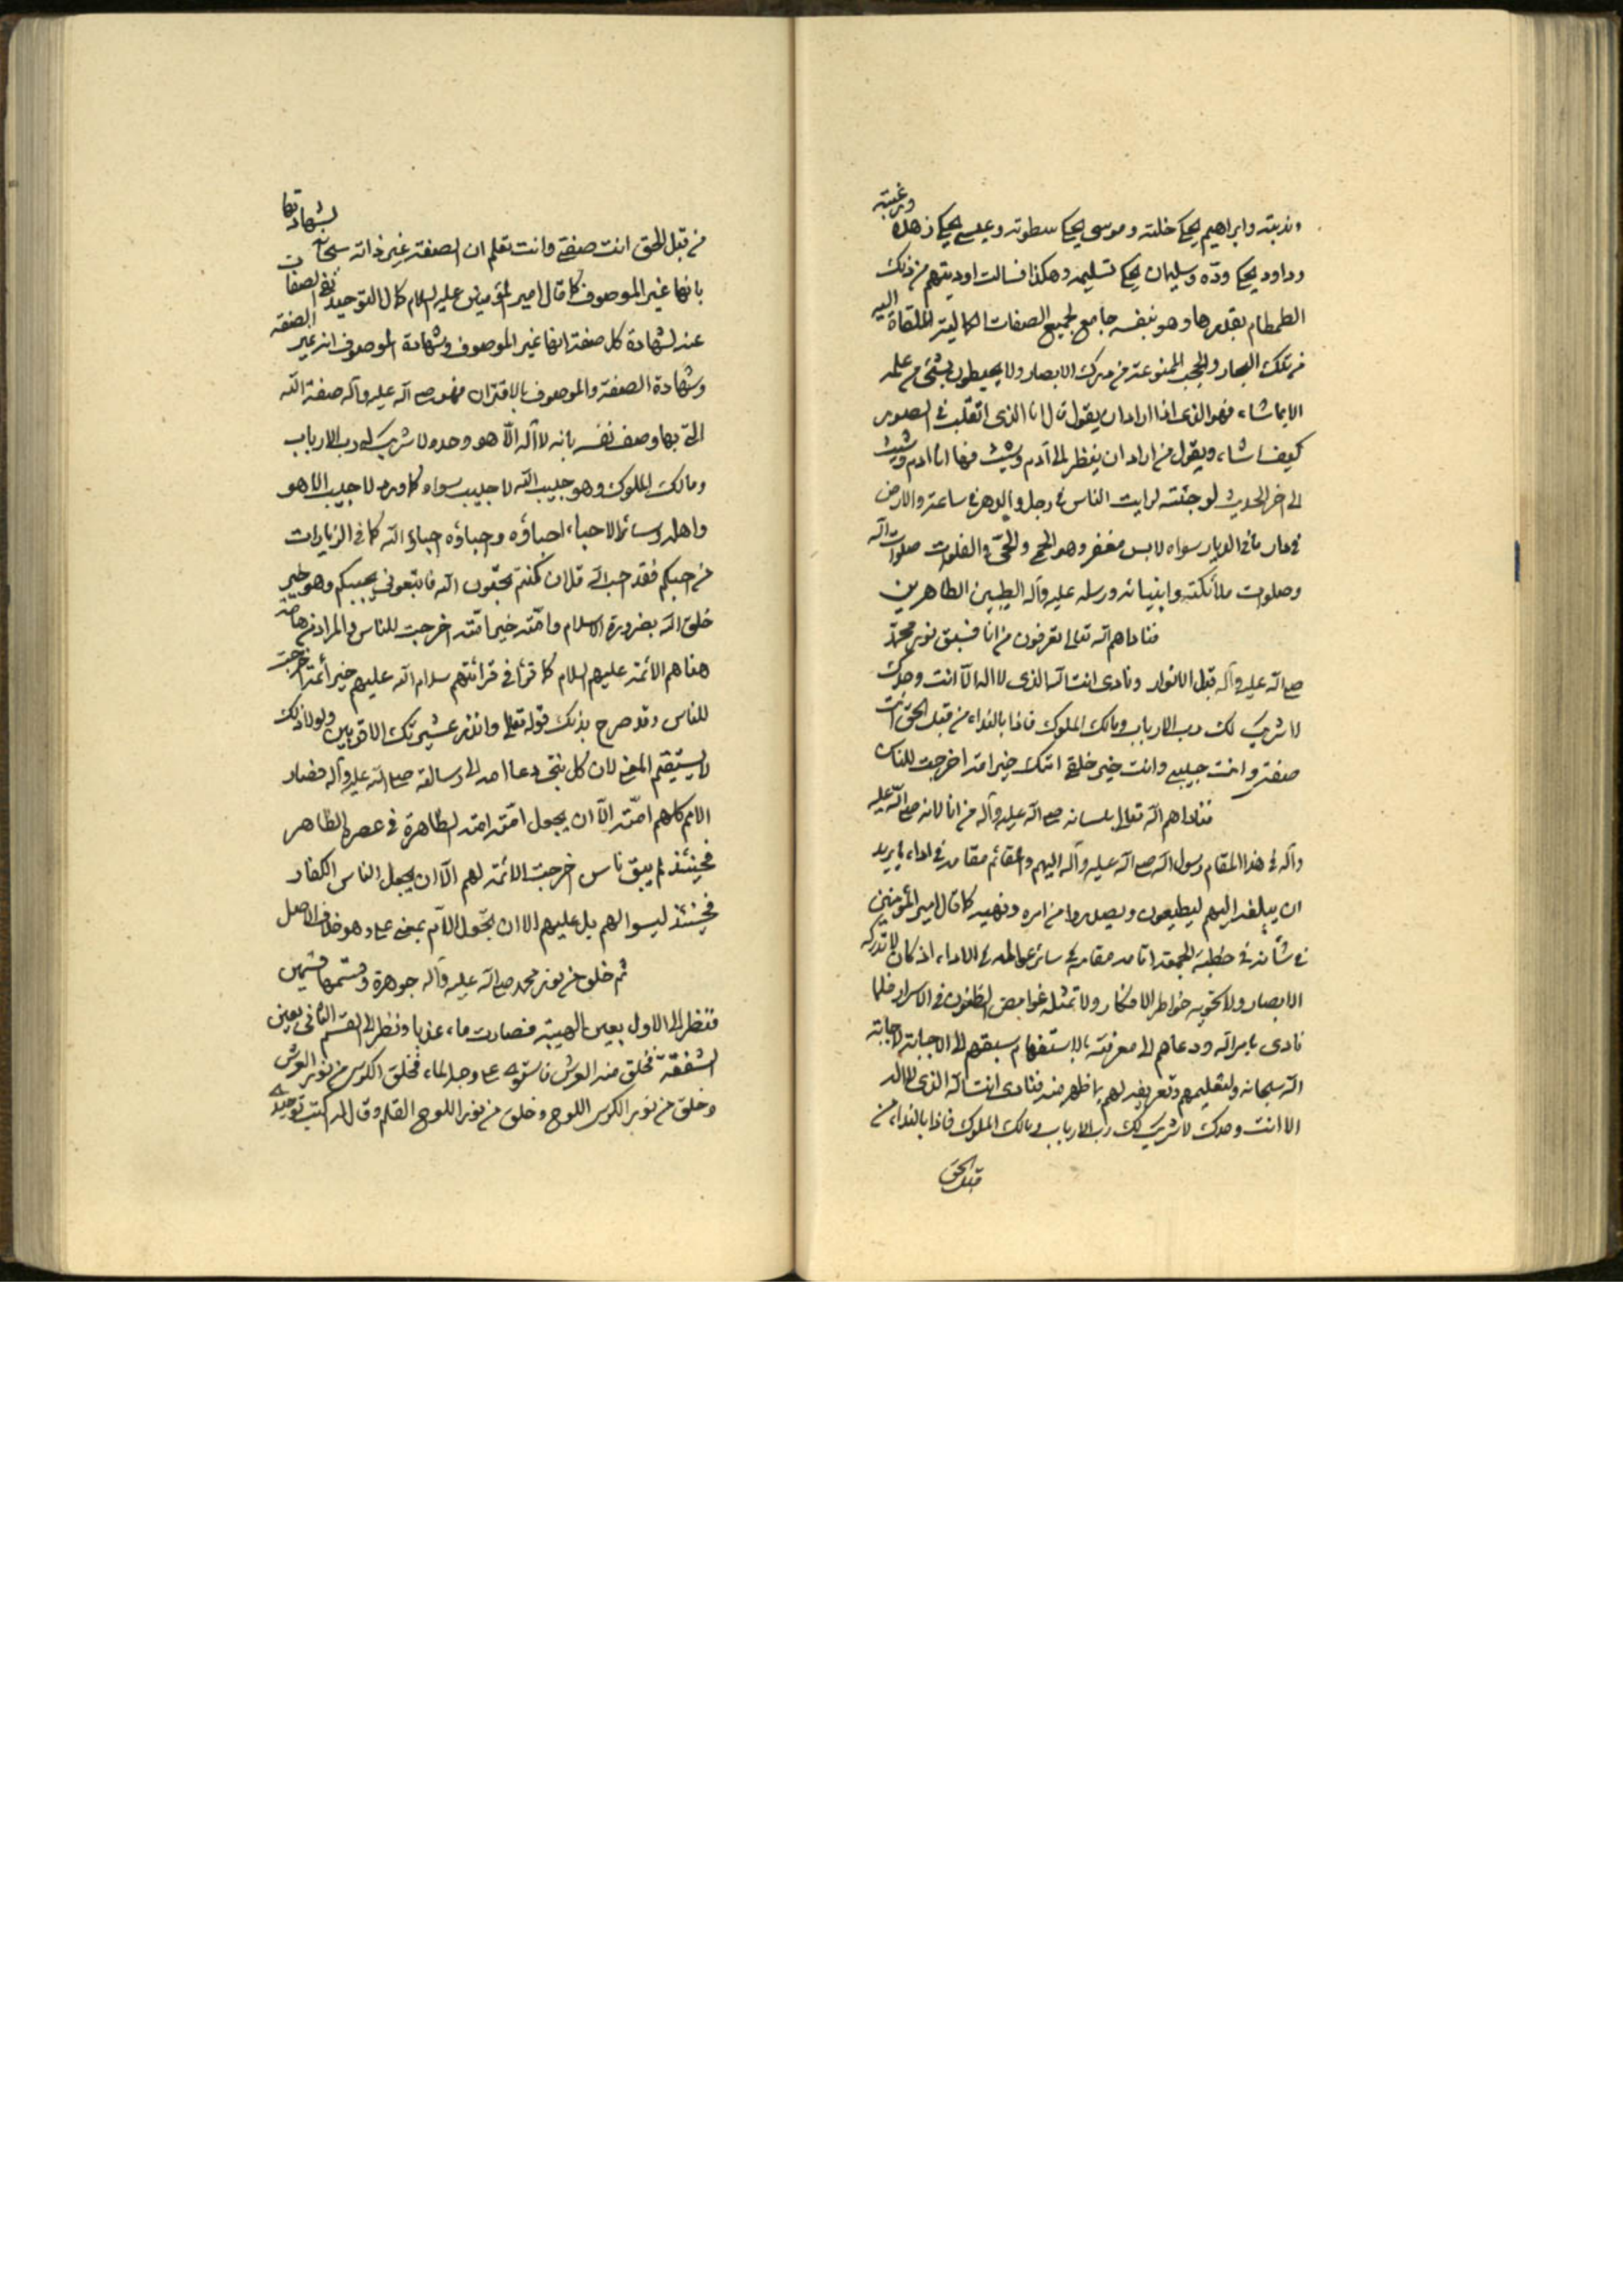 وندبته وابراهيم يحكى خلته وموسى يحكى سطوته وعيسى يحكى زهده ورغبته
وداود يحكى ودّه وسليمان يحكى تسليمه وهكذا فسالت اوديتهم من ذلك
الطمطام بقدرها وهو بنفسه جامع لجميع الصفات الكمالية الملقاة اليه
من تلك البحار والحجب الممنوعة من مدرك الابصار ولا يحيطون بشئ من علمه
الا بما شاء فهو الذى اذا اراد ان يقول قال انا الذى اتقلّب فى الصور
كيف اشاء ويقول من اراد ان ينظر الى آدم وشيث فها انا ادم وشيث
الى اخر الحديث لو جئته لرايت الناس فى رجل والدهر فى ساعة والارض
فى دار ما فى الديار سواه لابس مغفر وهو الحى والحىّ والفلوات صلوات الله
وصلوات ملائكته وانبيائه ورسله عليه وآله الطيبين الطاهرين
فناداهم الله تعالى اتعرفون من انا فسبق نور محمّد
صلى الله عليه وآله قبل الانوار ونادى انت الله الذى لا اله الّا انت وحدك
لا شريك لك رب الارباب ومالك الملوك فاذا بالنداء من قبل الحق انت
صفتى وانت حبيبى وانت خير خلقى امتك خير امة اخرجت للناس
فناداهم الله تعالى بلسانه صلى الله عليه وآله من انا لانه صلى الله عليه
وآله فى هذا المقام رسول الله صلى الله عليه وآله اليهم والقائم مقامه فى اداء ما يريد
ان يبلغه اليهم ليطيعون ويصدروا من امره ونهيه كما قال امير المؤمنين
فى شأنه فى خطبة الجمعة اقامه مقامه فى سائر عوالمه فى الاداء اذ كان لا تدركه
الابصار ولا تحويه خواطر الافكار ولا تمثله غوامض الظنون فى الاسرار فلما
نادى بامر الله ودعاهم الى معرفته بالاستفهام سبقهم الى الاجابة لاجابته
الله سبحانه ولتعليمهم وتعريفه لهم بما ظهر منه فنادى انت الله الذى لا اله
الا انت وحدك لا شريك لك رب الارباب ومالك الملوك فاذا بالنداء من
قبل الحق
من قبل الحق انت صفتى وانت تعلم ان الصفة غير ذاته سبحانه لشهادتها
بانها غير الموصوف كما قال امير المؤمنين عليه السلام كمال التوحيد نفى الصفات
عنه لشهادة كل صفة انها غير الموصوف وشهادة الموصوف انه غير الصفة
وشهادة الصفة والموصوف بالاقتران فهو صلى الله عليه وآله صفة الله
التى بها وصف نفسه بانه لا اله الّا هو وحده لا شريك له رب الارباب
ومالك الملوك وهو حبيب الله لا حبيب سواه كما ورد لا حبيب الا هو
واهله وسائر الاحباء احباؤه وحباؤه حباؤ الله كما فى الزيارات
من احبكم فقد احب الله قل ان كنتم تحبّون الله فاتبعونى يحببكم وهو خير
خلق الله بضرورة الاسلام وامّته خير امّته اخرجت للناس والمراد من الامة
هنا هم الائمة عليهم السلام كما قرأ فى قرائتهم سلام الله عليهم خير أئمة اخرجت
للناس وقد صرح بذلك قوله تعالى وانذر عشيرتك الاقربين ولولا ذلك
لا يستقيم المعنى لان كل نبى دعا امته الى رسالته صلى الله عليه وآله فصار
الامم كلهم امّته الّا ان يجعل امّته امته الظاهرة فى عصره الظاهر
فحينئذ لم يبق ناس اخرجت الائمة لهم الّا ان يجعل الناس الكفار
فحينئذ ليسوا لهم بل عليهم الا ان تجعل اللام بمعنى على وهو خلاف الاصل
ثم خلق من نور محمد صلى الله عليه وآله جوهرة وقسّمها قسمين
فنظر الى الاول بعين الهيبة فصارت ماء عذبا ونظر الى القسم الثانى بعين
الشفقة فخلق منه العرش فاستوى على وجه الماء فخلق الكرسى من نور العرش
وخلق من نور الكرسى اللوح وخلق من نور اللوح القلم وقال له اكتب توحيدى